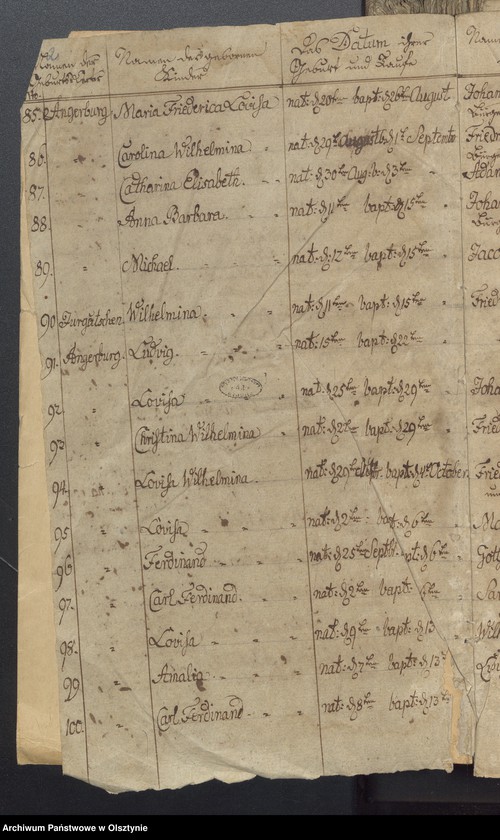 Namen der Geburts-Oerter
Namen der gebornen Kinder
Das Datum ihrer Geburt und Taufe
No.
85. Angerburg. Maria Friederica Lovisa nat: d 20te bapt: d 26te August
86. " Carolina Wilhelmina " nat: d 29te August d 1te Septembr
87. " Catharina Elisabeth. " nat: d 30te Aug: d 3te "
88. " Anna Barbara. " nat: d 11te bapt: d 15te "
89. " Michael. " nat: d 12te bapt: d 15te "
90 Jurgutschen. Wilhelmina. " nat: d 11te bapt: d 15te "
91. Angerburg. Ludvig. " nat: 15te bapt: d 22te "
92. " Lovisa " nat: d 25te bapt: d 29te "
93 " Christina Wilhelmina " nat: d 2te bapt: d 29te "
94. " Lovisa Wilhelmina. nat: d 29te bapt: d 4te October
95 " Lovisa " nat: d 2te bapt: d 6te "
96 " Ferdinand " nat: d 25te Septbr d 6te "
97. " Carl Ferdinand. " nat: d 2te bapt:
98. " Lovisa " nat: d 9te bapt: d 13
99 " Amalia " nat: d 7te bapt: d 13
100. " Carl Ferdinand. " nat: d 8te bapt: d 13
Archiwum Państwowe w Olsztynie